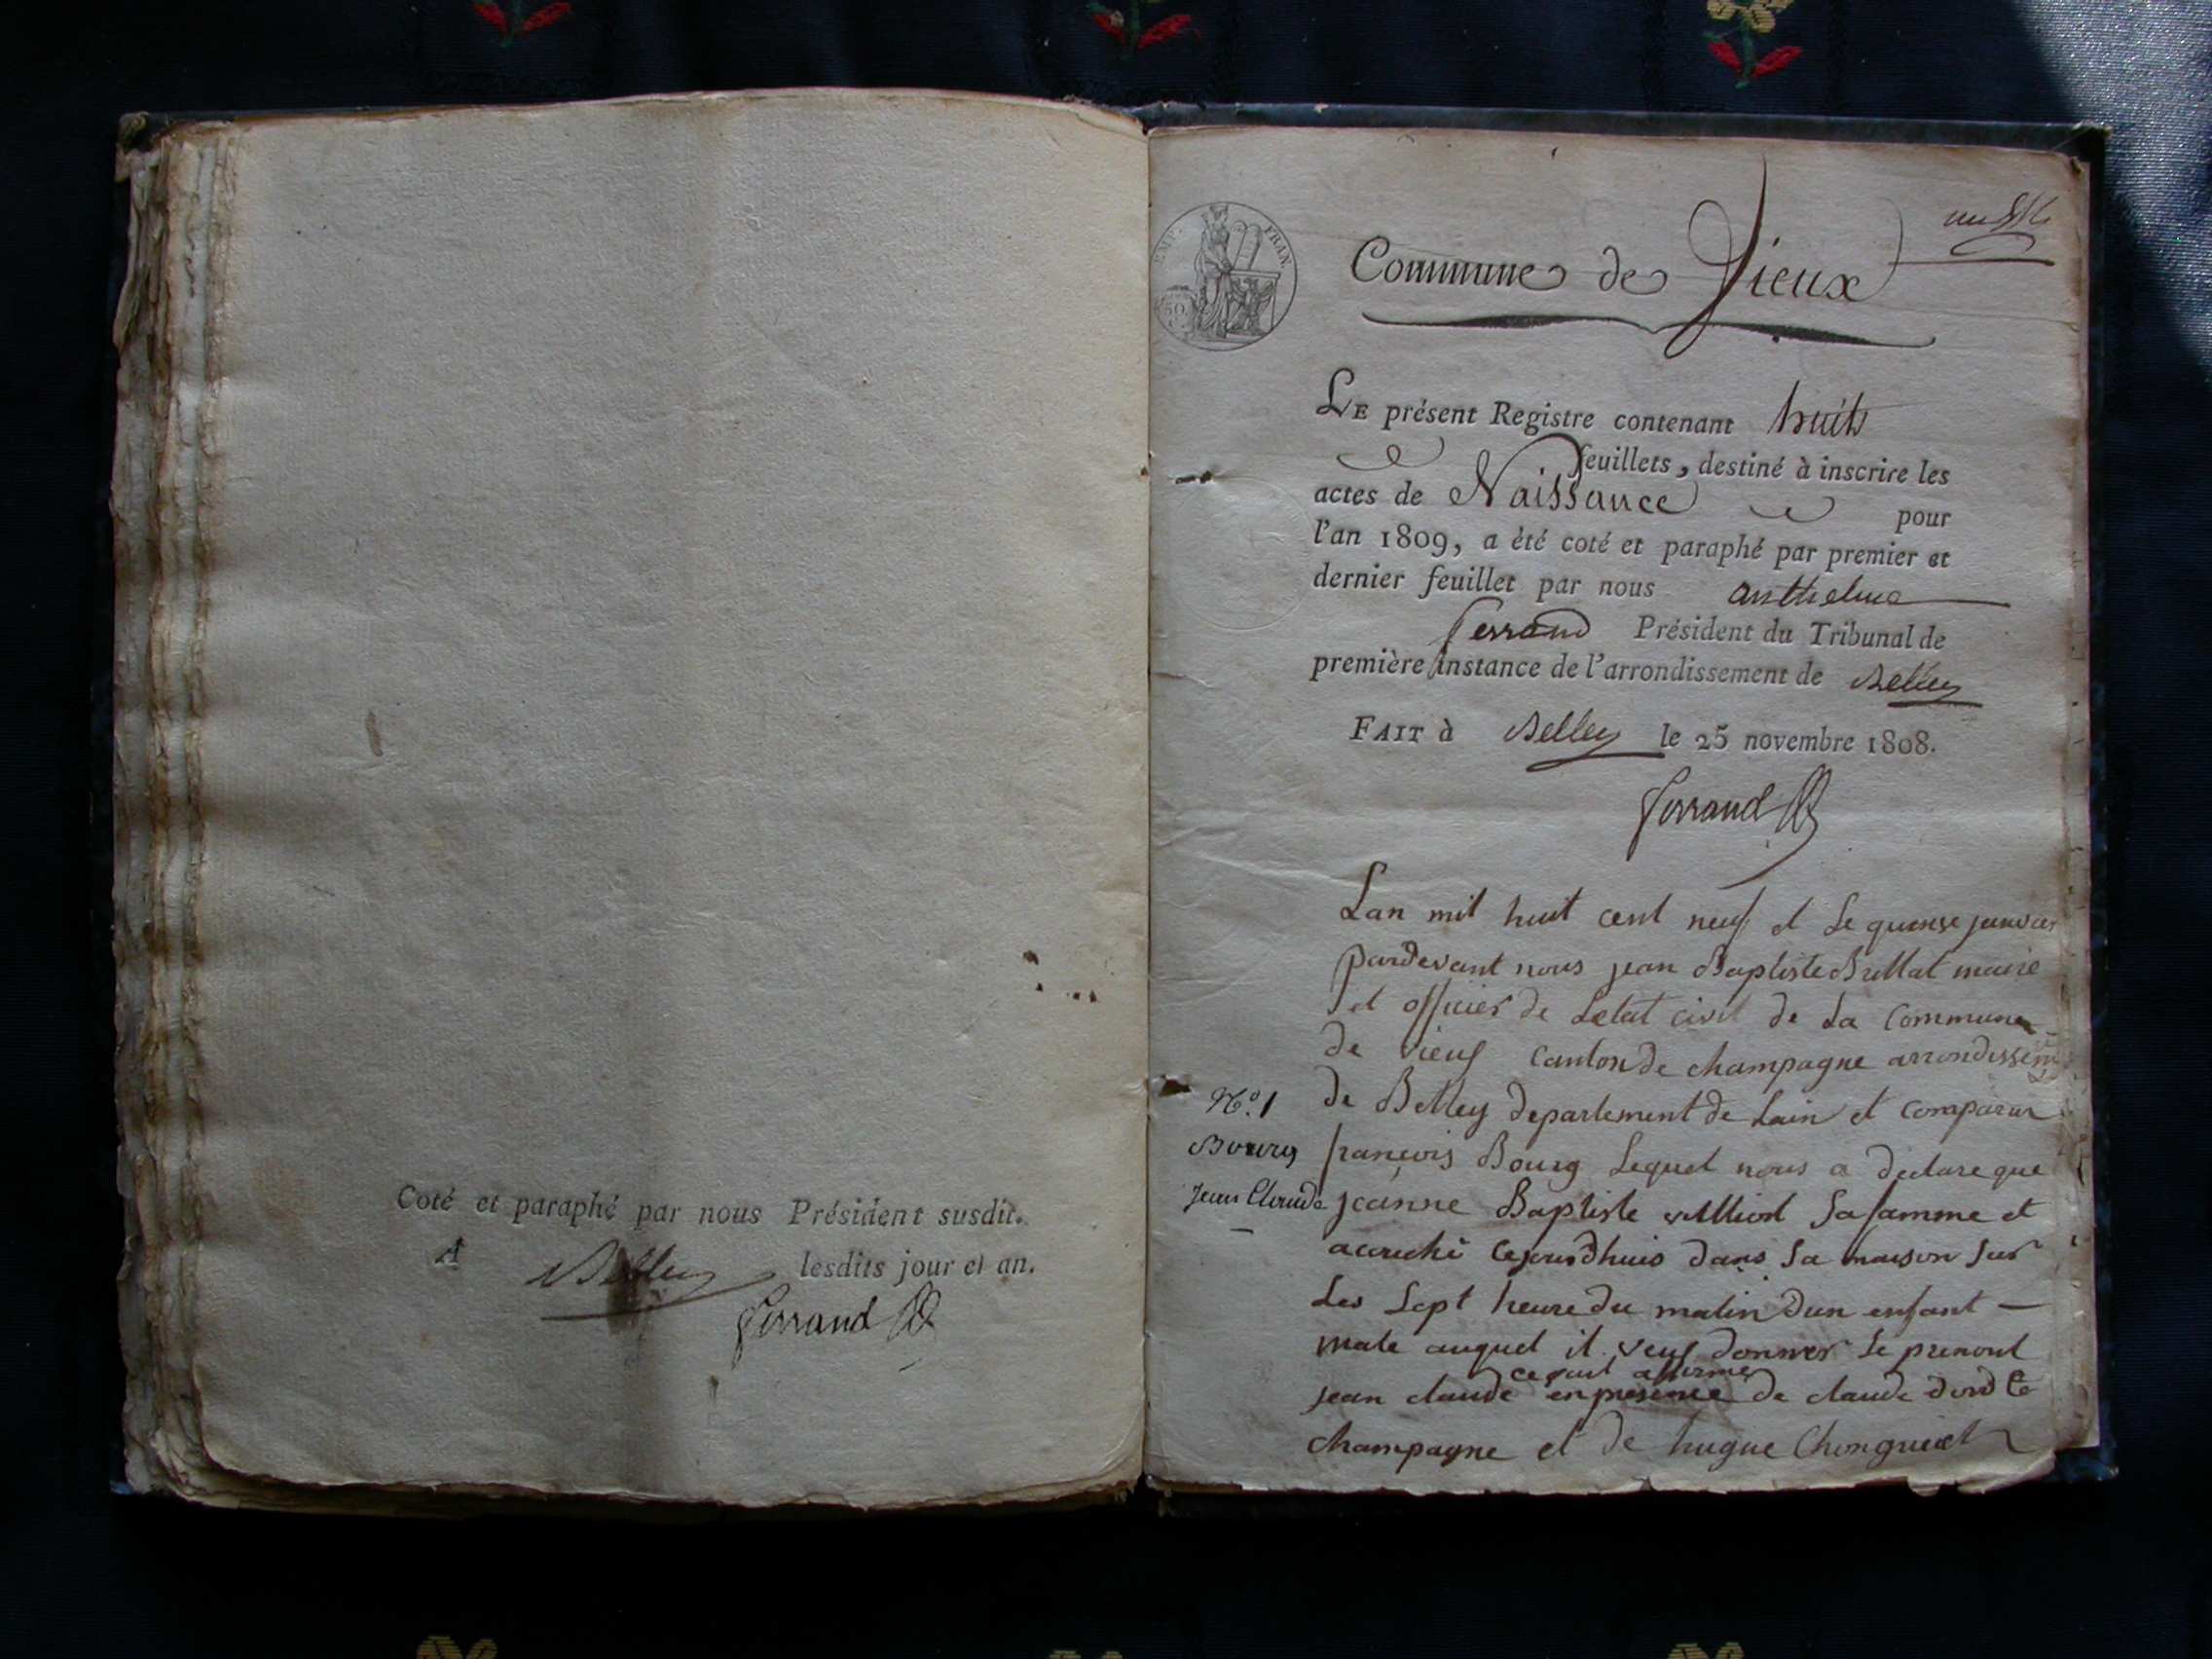 Coté et paraphé par nous Président susdit.
A Belley lesdits jour et an.
Ferrand
EMP. FRAN.
50
Commune de Vieux
LE présent Registre contenant huit
feuillets, destiné à inscrire les
actes de Naissance pour
l'an 1809, a été coté et paraphé par premier et
dernier feuillet par nous anthelme
ferrand Président du Tribunal de
première instance de l'arrondissement de Belley
FAIT à Belley le 25 novembre 1808.
ferrand
Lan mil huit cent neuf et le quinse janvier
pardevant nous jean Baptiste Brillat maire
et officier de Letat civil de La Commune
de vieuf Canton de champagne arrondissem
N.º 1
de Belley departement de Lain et comparu
Bourg
françois Bourg Lequel nous a declare que
Jean Claude
jeanne Baptiste sa famme et
acouché cejourdhuis dans sa maison sur
Les sept heure du matin dun enfant
male auquel il veuf donner Le prenont
ce quil affirme
jean claude en presence de claude
champagne et de hugue